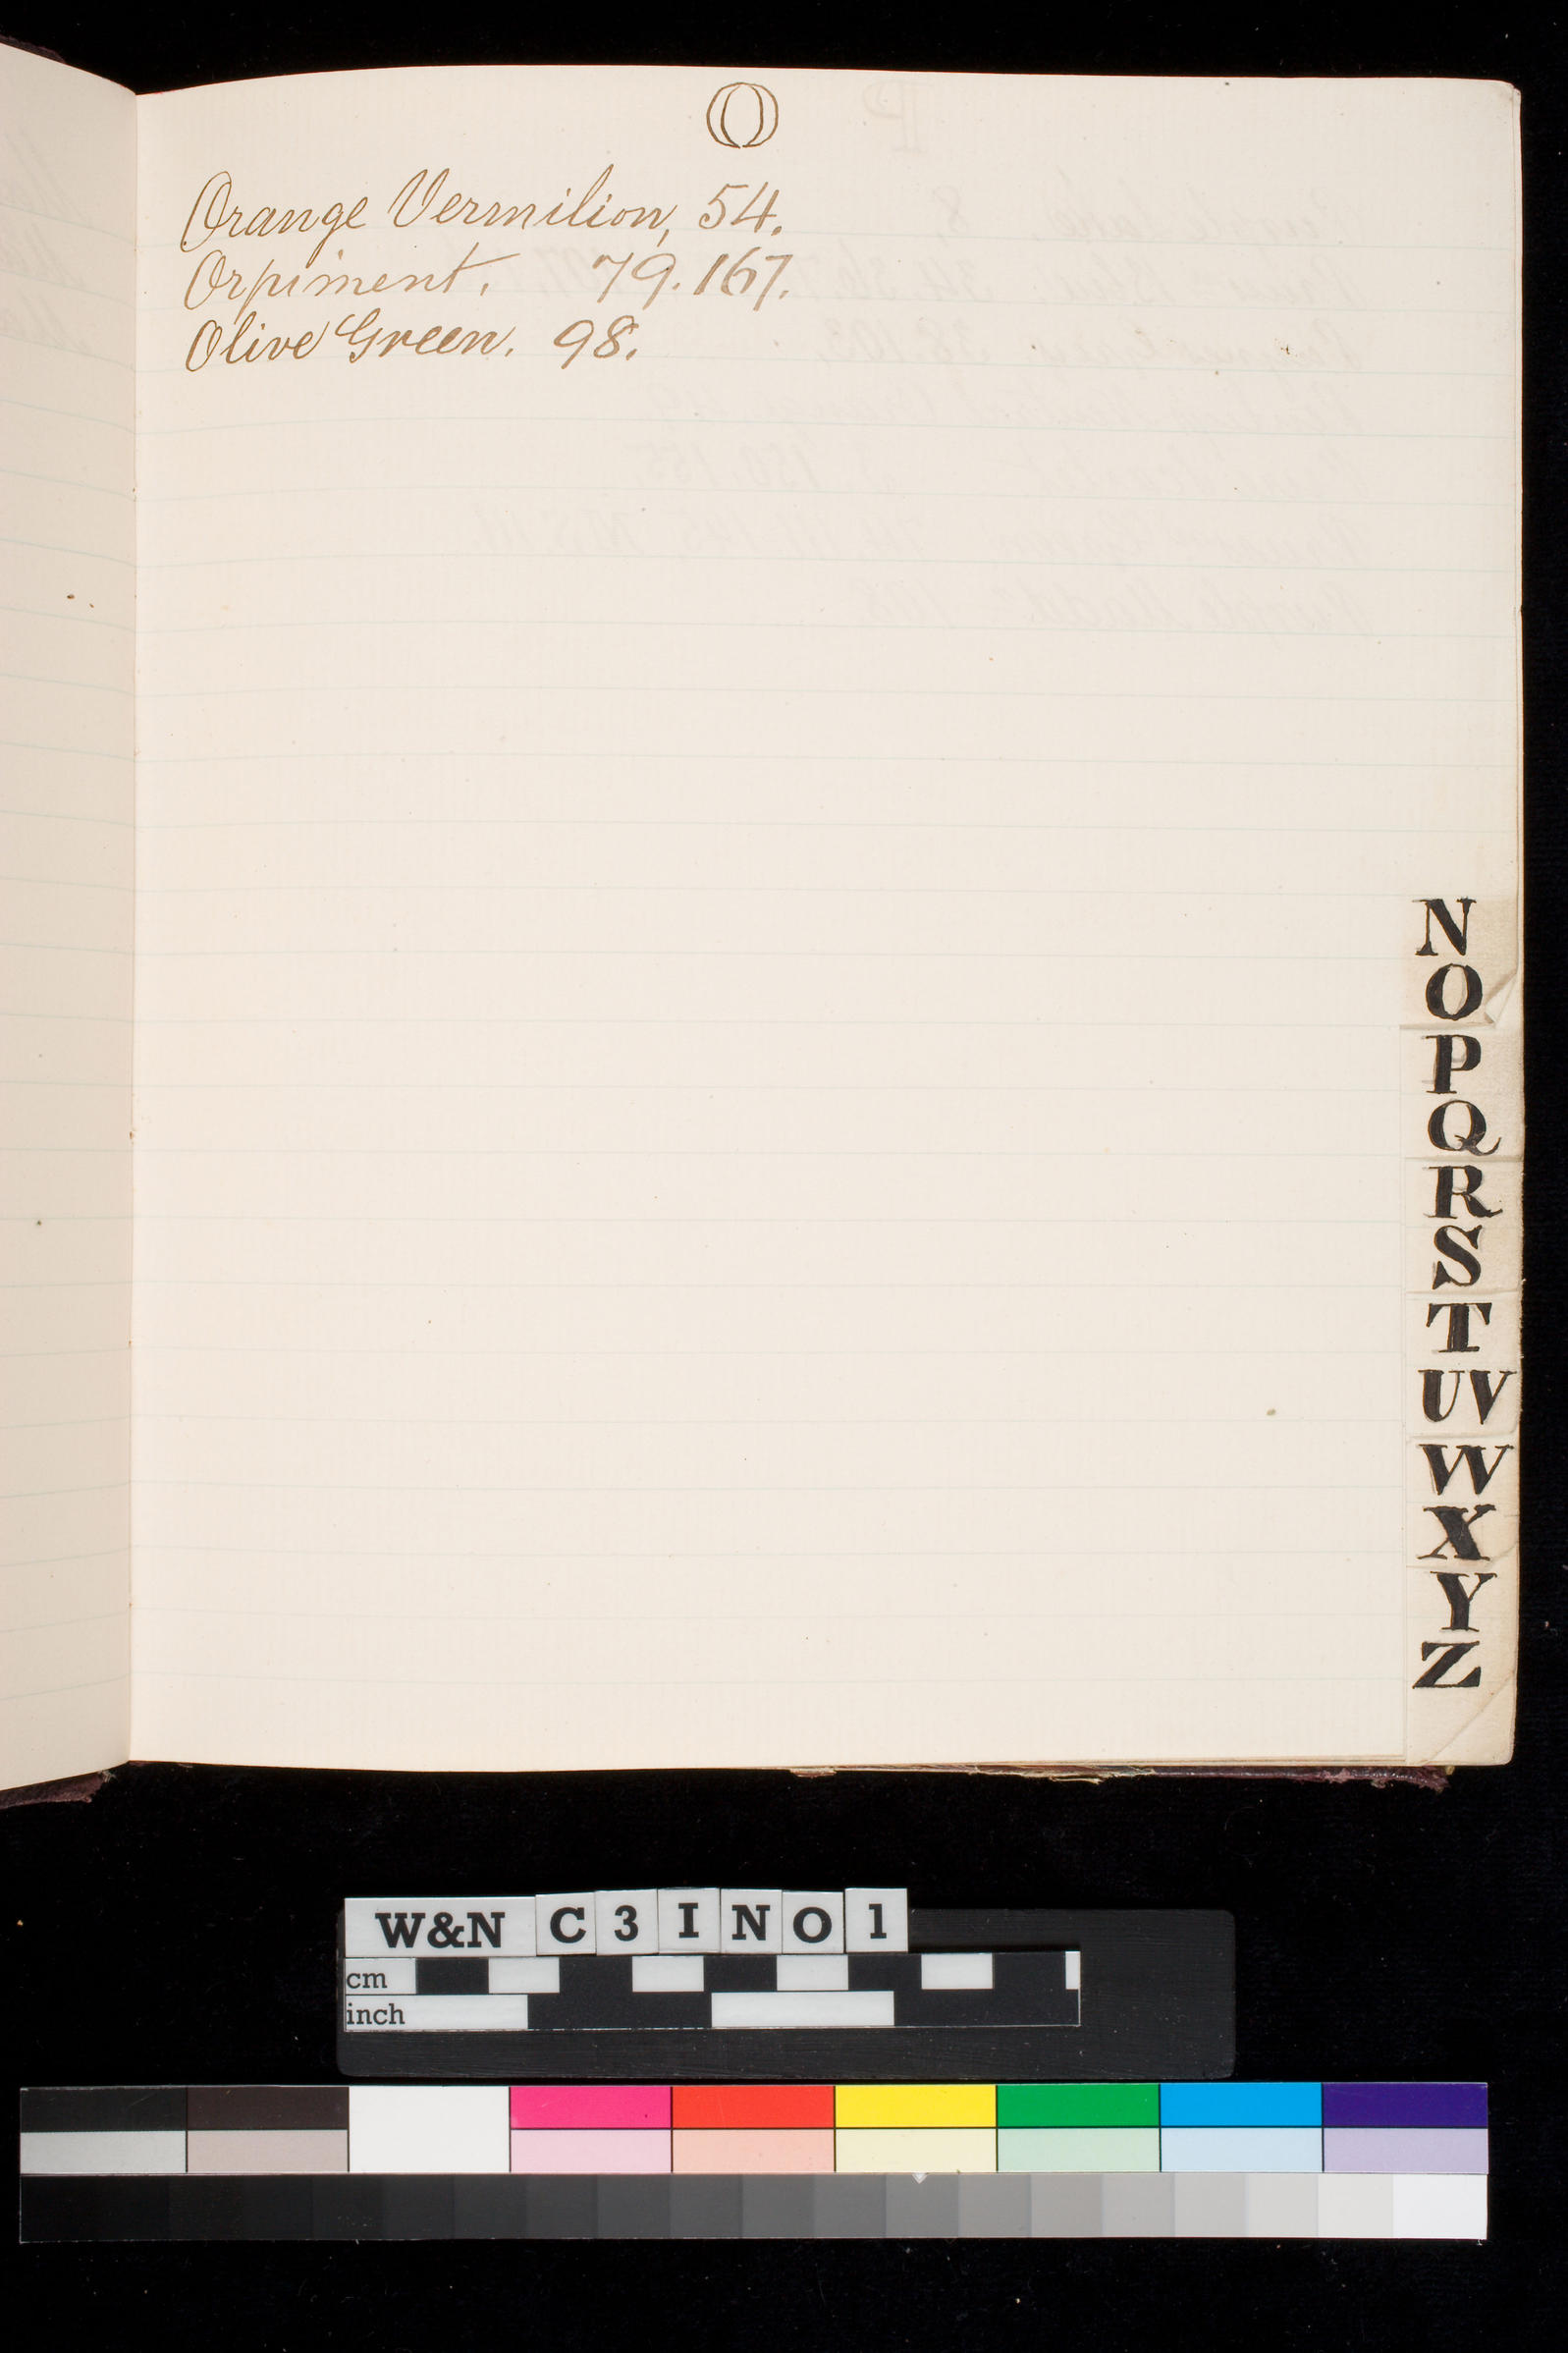 O
Orange Vermilion, 54.
Orpiment. 79. 167.
Olive Green. 98.
N
O
P
Q
R
S
T
UV
W
X
Y
Z
W&N C 3 I N O 1
cm
inch